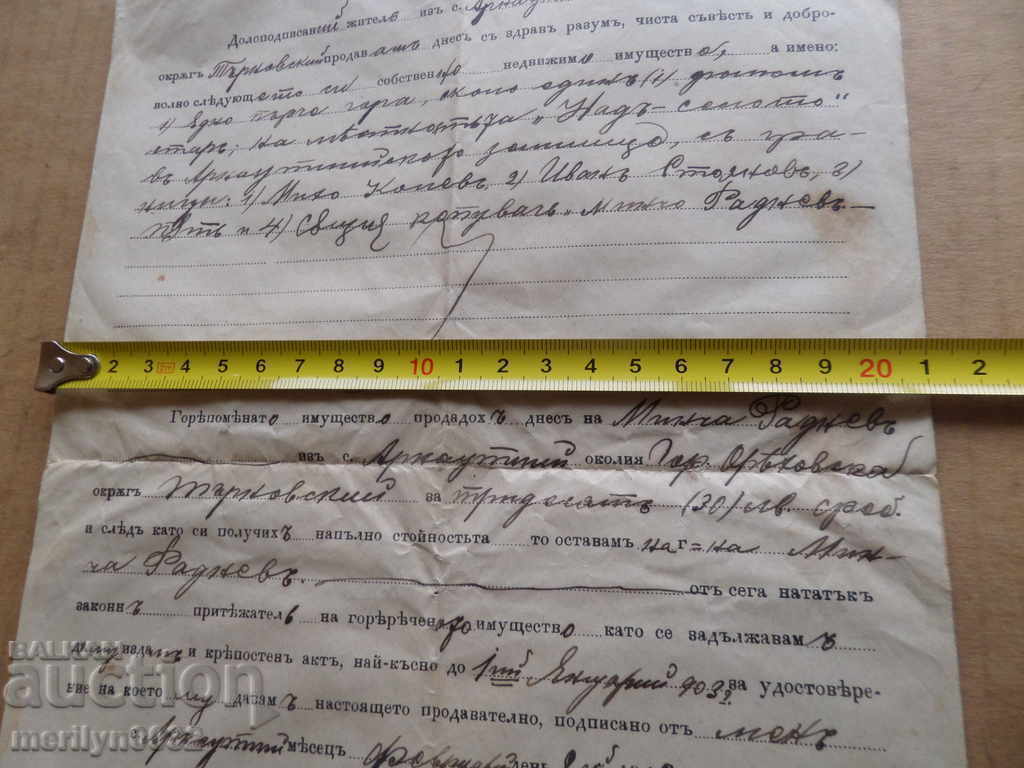 Долоподписаний жителъ изъ с.
окрѫгъ Търновский продавамъ днесъ съ здравъ разумъ, чиста съвѣсть и добро-
волно слѣдующето си собственно недвижимо имущество, а именно:
1) Едно парче гора, около единъ (1)
старъ; на мѣстностьта „Надъ-селото"
въ Арнаутлийското землище, съ гра-
ници: 1) Михо Коневъ, 2) Иванъ Стояновъ, 3)
пѫтъ и 4) Сѫщия купувачъ Минчо Радневъ —
2 3 4 5 6 7 8 9 10 1 2 3 4 5 6 7 8 9 20 1 2
Горѣпоменато имущество продадохъ днесъ на Минча Радневъ
изъ с. околия Гор. Орѣховска
окрѫгъ Търновский за тридесять (30) лв. среб.
и слѣдъ като си получихъ напълно стойностьта то оставамъ на г-на Мин-
ча Радневъ. отъ сега нататъкъ
законнъ притѣжателъ на горѣреченото имущество като се задължавамъ
да му издамъ и крѣпостенъ актъ, най-късно до 1ий Януарий 903 за удостовѣре-
ние на което му давамъ настоящето продавателно, подписано отъ менъ
мѣсецъ Февруарий день
БАЛКАН
auction